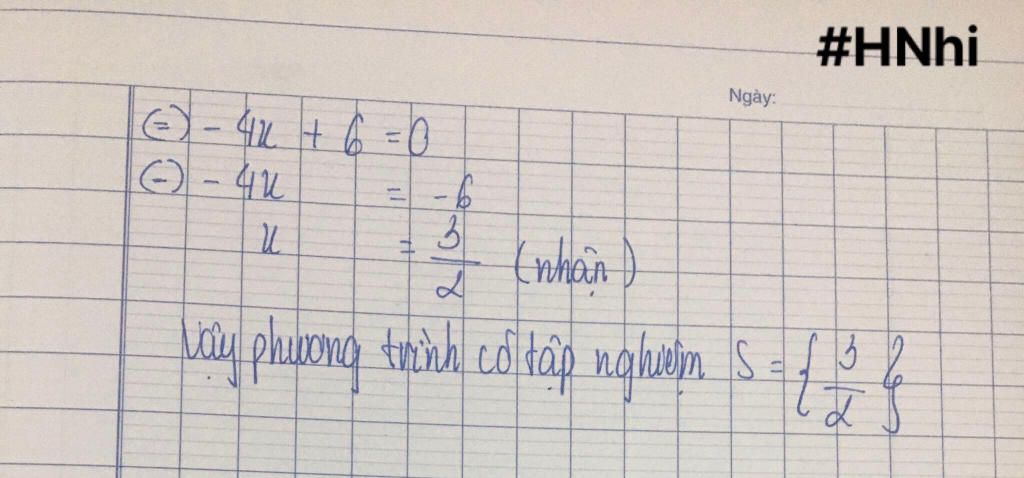 #HNhi
Ngày:
(=) - 4x + 6 = 0
(-) - 4x = -6
x = 3/2 (nhận)
Vậy phương trình có tập nghiệm S = {3/2}